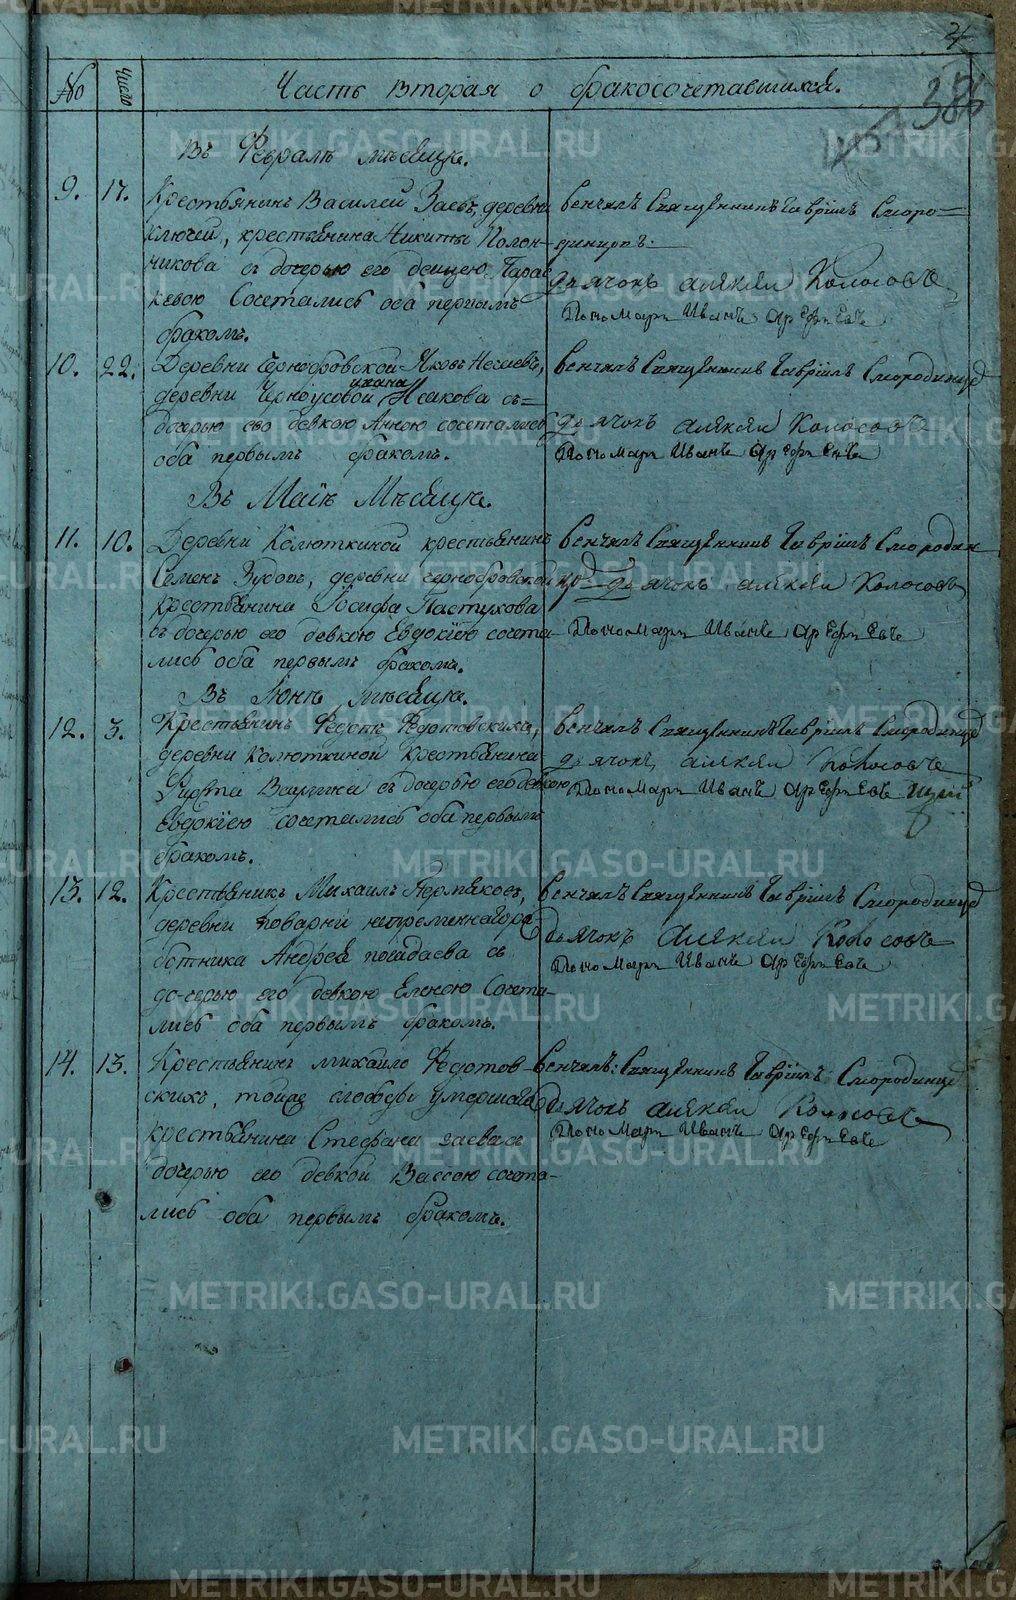 № Число Часть вторая о бракосочетавшихся.
386
Въ Февралѣ мѣсяцѣ.
9. 17. Крестьянинъ Василей Заевъ, деревни
Ключей, крестьянина Никиты Полон-
никова съ дочерью его девицею Парас
кевою Сочетались оба первымъ
бракомъ.
венчалъ Священникъ Гаврiилъ Сморо=
динцовъ:
дьячокъ алексѣй Колосовъ
Пономарь Иванъ арефиевъ
10. 22. Деревни Чернобровской Яковъ
деревни Черноусовой Ивана Исакова съ=
дочерью его девкою Анною сочетались
оба первымъ бракомъ.
венчалъ Священникъ Гаврiилъ Смородинцов
дьячокъ алексѣй Колосовъ
Пономарь Иванъ арефиевъ
Въ Маiѣ Мѣсяцѣ.
11. 10. Деревни Колюткиной крестьянинъ
Семенъ деревни чернобровской
крестьянина Iосифа Пастухова
съ дочерью его девкою Евдокiею сочета-
лись оба первымъ бракомъ.
венчалъ Священникъ Гаврiилъ Смородин
дьячокъ алексѣй Колосовъ
Пономарь Иванъ арефиевъ
Въ Iюнѣ мѣсяцѣ.
12. 3. Крестьянинъ Федотъ Федотовскихъ,
деревни Колюткиной крестьянина
съ дочерью его девкою
Евдокiею сочетались оба первымъ
бракомъ.
венчалъ Священникъ Гаврiилъ Смородинцов
дьячокъ алексѣй Колосовъ
Пономарь Иванъ арефиевъ
13. 12. Крестьянинъ Михаилъ Пермяковъ,
деревни поварни непременнаго ра-
ботника Андрея посадаева съ
дочерью его девкою Еленою Сочета-
лись оба первымъ бракомъ.
венчалъ Священникъ Гаврiилъ Смородинцов
дьячокъ алексѣй Колосовъ
Пономарь Иванъ арефиевъ
14. 13. Крестьянинъ михайло Федотов-
скихъ, тойже слободы умершаго
крестьянина Стефана заева съ
дочерью его девкой Вассою сочета-
лись оба первымъ бракомъ.
Венчалъ: Священникъ Гаврiилъ Смородинцов
дьячокъ алексѣй Колосовъ
Пономарь Иванъ арефиевъ
METRIKI.GASO-URAL.RU